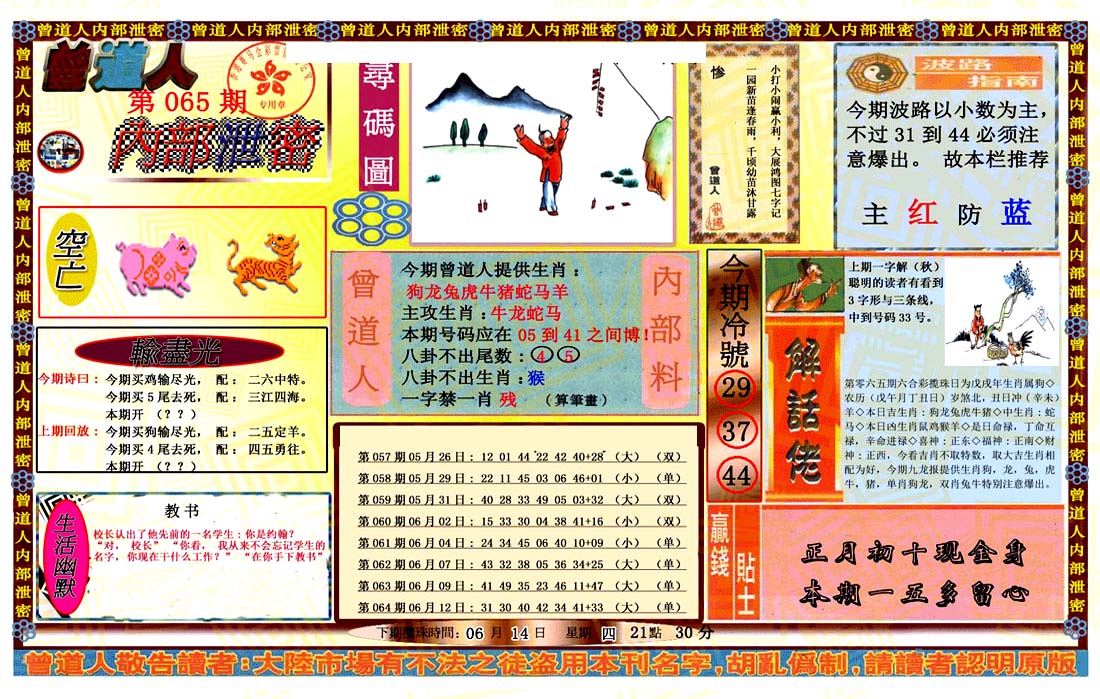 曾道人内部泄密 曾道人内部泄密 曾道人内部泄密 曾道人内部泄密 曾道人内部泄密 曾道人内部泄密 曾道人内部泄密
曾道人
第 065 期
专用章
内部泄密
曾道人内部泄密
曾道人内部泄密
曾道人内部泄密
曾道人内部泄密
尋碼圖
惨
小打小闹赢小利，大展鸿图七字记
一园新苗逢春雨，千顷幼苗沐甘露
曾道人
波路
指南
今期波路以小数为主，
不过 31 到 44 必须注
意爆出。 故本栏推荐
主 红 防 蓝
空亡
輸盡光
今期诗曰： 今期买鸡输尽光， 配： 二六中特。
今期买 5 尾去死， 配： 三江四海。
本期开 （？？）
上期回放： 今期买狗输尽光， 配： 二五定羊。
今期买 4 尾去死， 配： 四五勇往。
本期开 （？？）
曾道人
今期曾道人提供生肖：
狗龙兔虎牛猪蛇马羊
主攻生肖：牛龙蛇马
本期号码应在 05 到 41 之间博！
八卦不出尾数： 4 5
八卦不出生肖：猴
一字禁一肖 残 （算筆畫）
内部料
今期冷號
29
37
44
上期一字解（秋）
聪明的读者有看到
3 字形与三条线，
中到号码 33 号。
解話佬
第零六五期六合彩搅珠日为戊戌年生肖属狗◇
农历（戊午月丁丑日）岁煞北，丑日冲（辛未）
羊◇本日吉生肖：狗龙兔虎牛猪◇中生肖：蛇
马◇本日凶生肖鼠鸡猴羊◇是日命禄，丁命互
禄，辛命进禄◇喜神：正东◇福神：正南◇财
神：正西，今看吉肖不取特数，取大吉生肖相
配为好，今期九龙报提供生肖狗，龙，兔，虎
牛，猪，单肖狗龙，双肖兔牛特别注意爆出。
生活幽默
教书
校长认出了他先前的一名学生：你是约翰？
“对， 校长” “你看， 我从来不会忘记学生的
名字，你现在干什么工作？” “在你手下教书”
第 057 期 05 月 26 日： 12 01 44 22 42 40+28 （大） （双）
第 058 期 05 月 29 日： 22 11 45 03 06 46+01 （小） （单）
第 059 期 05 月 31 日： 40 28 33 49 05 03+32 （大） （双）
第 060 期 06 月 02 日： 15 33 30 04 38 41+16 （小） （双）
第 061 期 06 月 04 日： 24 34 45 06 40 10+09 （小） （单）
第 062 期 06 月 07 日： 43 32 38 05 36 34+25 （大） （单）
第 063 期 06 月 09 日： 41 49 35 23 46 11+47 （大） （单）
第 064 期 06 月 12 日： 31 30 40 42 34 41+33 （大） （单）
贏錢
貼士
正月初十现金身
本期一五多留心
下期攪珠時間：06 月 14 日 星期 四 21點 30 分
曾道人敬告讀者:大陸市場有不法之徒盗用本刊名字,胡亂僞制,請讀者認明原版